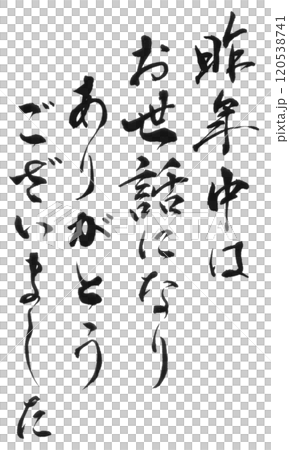 昨年中は
お世話になり
ありがとう
ございました
120538741